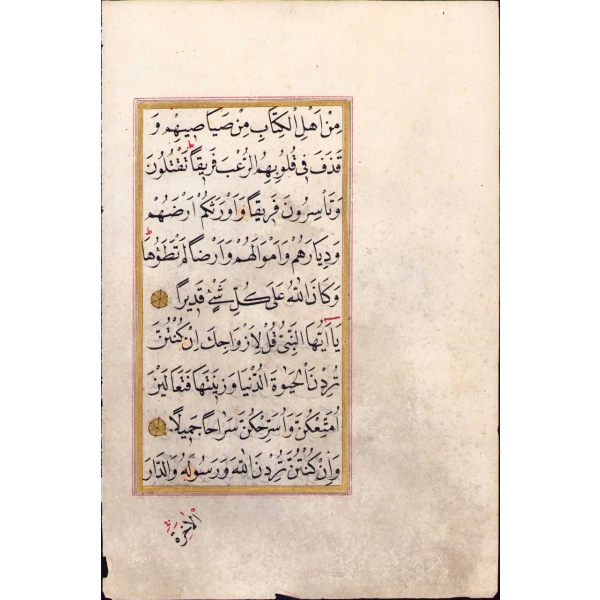 مِنْ اَهْلِ الْكِتَابِ مِنْ صَيَاصِيهِمْ وَ
قَذَفَ فِى قُلُوبِهِمُ الرُّعْبَ فَرِيقاً تَقْتُلُونَ
وَتَأْسِرُونَ فَرِيقاً وَاَوْرَثَكُمْ اَرْضَهُمْ
وَدِيَارَهُمْ وَاَمْوَالَهُمْ وَاَرْضاً لَمْ تَطَؤُهَا
وَكَانَ اللهُ عَلَى كُلِّ شَىْءٍ قَدِيراً
يَا اَيُّهَا النَّبِىُّ قُلْ لِاَزْوَاجِكَ اِنْ كُنْتُنَّ
تُرِدْنَ الْحَيٰوةَ الدُّنْيَا وَزِينَتَهَا فَتَعَالَيْنَ
اُمَتِّعْكُنَّ وَاُسَرِّحْكُنَّ سَرَاحاً جَمِيلاً
وَاِنْ كُنْتُنَّ تُرِدْنَ اللهَ وَرَسُولَهُ وَالدَّارَ
الْاٰخِرَةَ